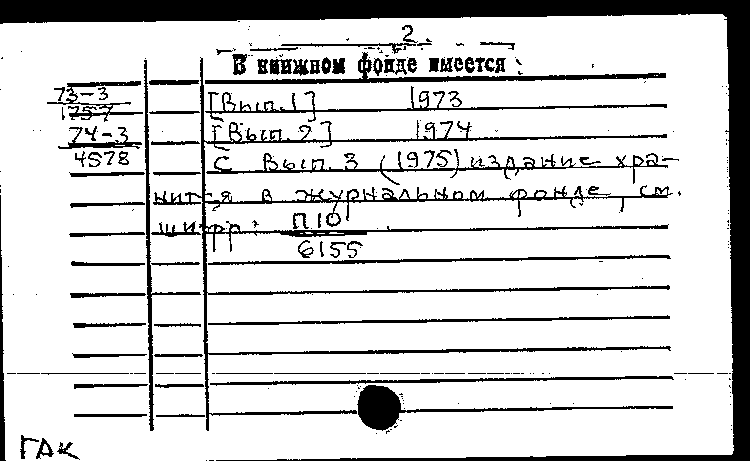 2.
В книжном фонде имеется:
73-3 [Вып. 1] 1973
1757
74-3 [Вып. 2] 1974
4578 С Вып. 3 (1975) издание хра-
нится в журнальном фонде, см.
шифр: П10
6155
ГАК